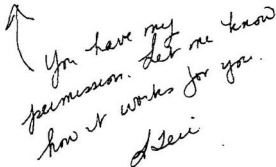 You have my
permission. Let me know
how it works for you.